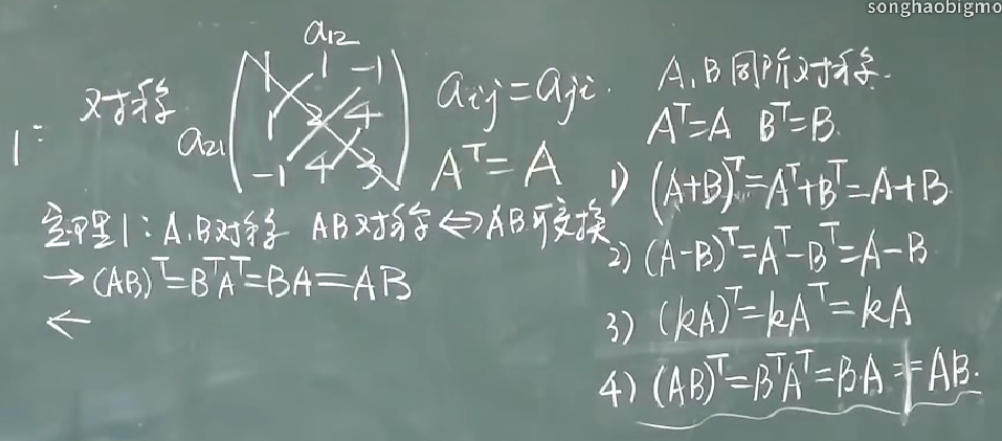 songhaobigmo
a₁₂
对称 a₂₁ ( 1 1 -1
1 2 4
-1 4 3 )
1:
aᵢⱼ=aⱼᵢ.
Aᵀ=A
定理1: A.B对称 AB对称⇔AB可交换
→(AB)ᵀ=BᵀAᵀ=BA=AB
←
A,B同阶对称.
Aᵀ=A Bᵀ=B.
1) (A+B)ᵀ=Aᵀ+Bᵀ=A+B.
2) (A-B)ᵀ=Aᵀ-Bᵀ=A-B
3) (kA)ᵀ=kAᵀ=kA
4) (AB)ᵀ=BᵀAᵀ=B.A≠AB.